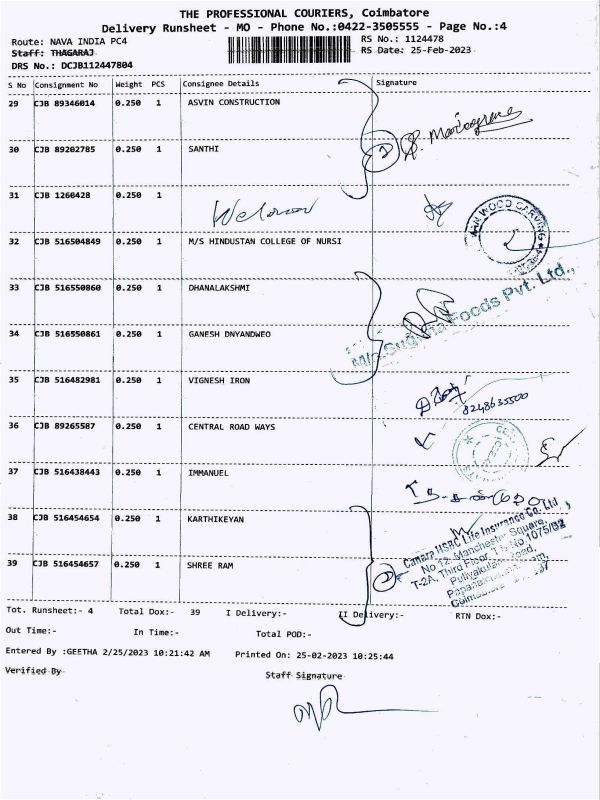 THE PROFESSIONAL COURIERS, Coimbatore
Delivery Runsheet - MO - Phone No.:0422-3505555 - Page No.:4
Route: NAVA INDIA PC4 RS No.: 1124478
Staff: THAGARAJ RS Date: 25-Feb-2023
DRS No.: DCJB112447804
S No Consignment No Weight PCS Consignee Details Signature
29 CJB 89346014 0.250 1 ASVIN CONSTRUCTION
30 CJB 89202785 0.250 1 SANTHI
2
31 CJB 1260428 0.250 1
32 CJB 516504849 0.250 1 M/S HINDUSTAN COLLEGE OF NURSI
33 CJB 516550860 0.250 1 DHANALAKSHMI
Foods Pvt. Ltd.,
34 CJB 516550861 0.250 1 GANESH DNYANDWEO
35 CJB 516482981 0.250 1 VIGNESH IRON
8248635500
36 CJB 89265587 0.250 1 CENTRAL ROAD WAYS
37 CJB 516438443 0.250 1 IMMANUEL
38 CJB 516454654 0.250 1 KARTHIKEYAN
Canara HSBC Life Insurance Co. Ltd.,
No 12, Manchester Square,
T-2A, Third Floor, T.S No.1075/B2
Puliyakulam Road,
39 CJB 516454657 0.250 1 SHREE RAM
2
Tot. Runsheet:- 4 Total Dox:- 39 I Delivery:- II Delivery:- RTN Dox:-
Out Time:- In Time:- Total POD:-
Entered By :GEETHA 2/25/2023 10:21:42 AM Printed On: 25-02-2023 10:25:44
Verified By Staff Signature